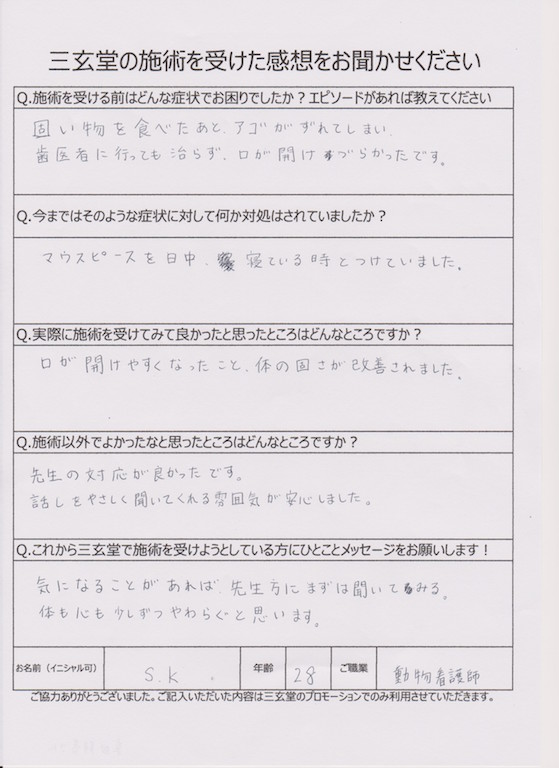 三玄堂の施術を受けた感想をお聞かせください
Q.施術を受ける前はどんな症状でお困りでしたか？エピソードがあれば教えてください
固い物を食べたあと、アゴがずれてしまい、
歯医者に行っても治らず、口が開けづらかったです。
Q.今まではそのような症状に対して何か対処はされていましたか？
マウスピースを日中、寝ている時とつけていました。
Q.実際に施術を受けてみて良かったと思ったところはどんなところですか？
口が開けやすくなったこと、体の固さが改善されました。
Q.施術以外でよかったなと思ったところはどんなところですか？
先生の対応が良かったです。
話しをやさしく聞いてくれる雰囲気が安心しました。
Q.これから三玄堂で施術を受けようとしている方にひとことメッセージをお願いします！
気になることがあれば、先生方にまずは聞いてみる。
体も心も少しずつやわらぐと思います。
お名前（イニシャル可） S.K. 年齢 28 ご職業 動物看護師
ご協力ありがとうございました。ご記入いただいた内容は三玄堂のプロモーションでのみ利用させていただきます。